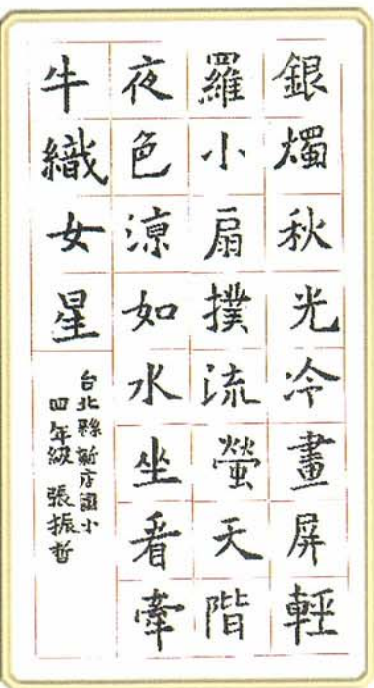 銀燭秋光冷畫屏輕
羅小扇撲流螢天階
夜色涼如水坐看牽
牛織女星
台北縣新店國小
四年級 張振哲